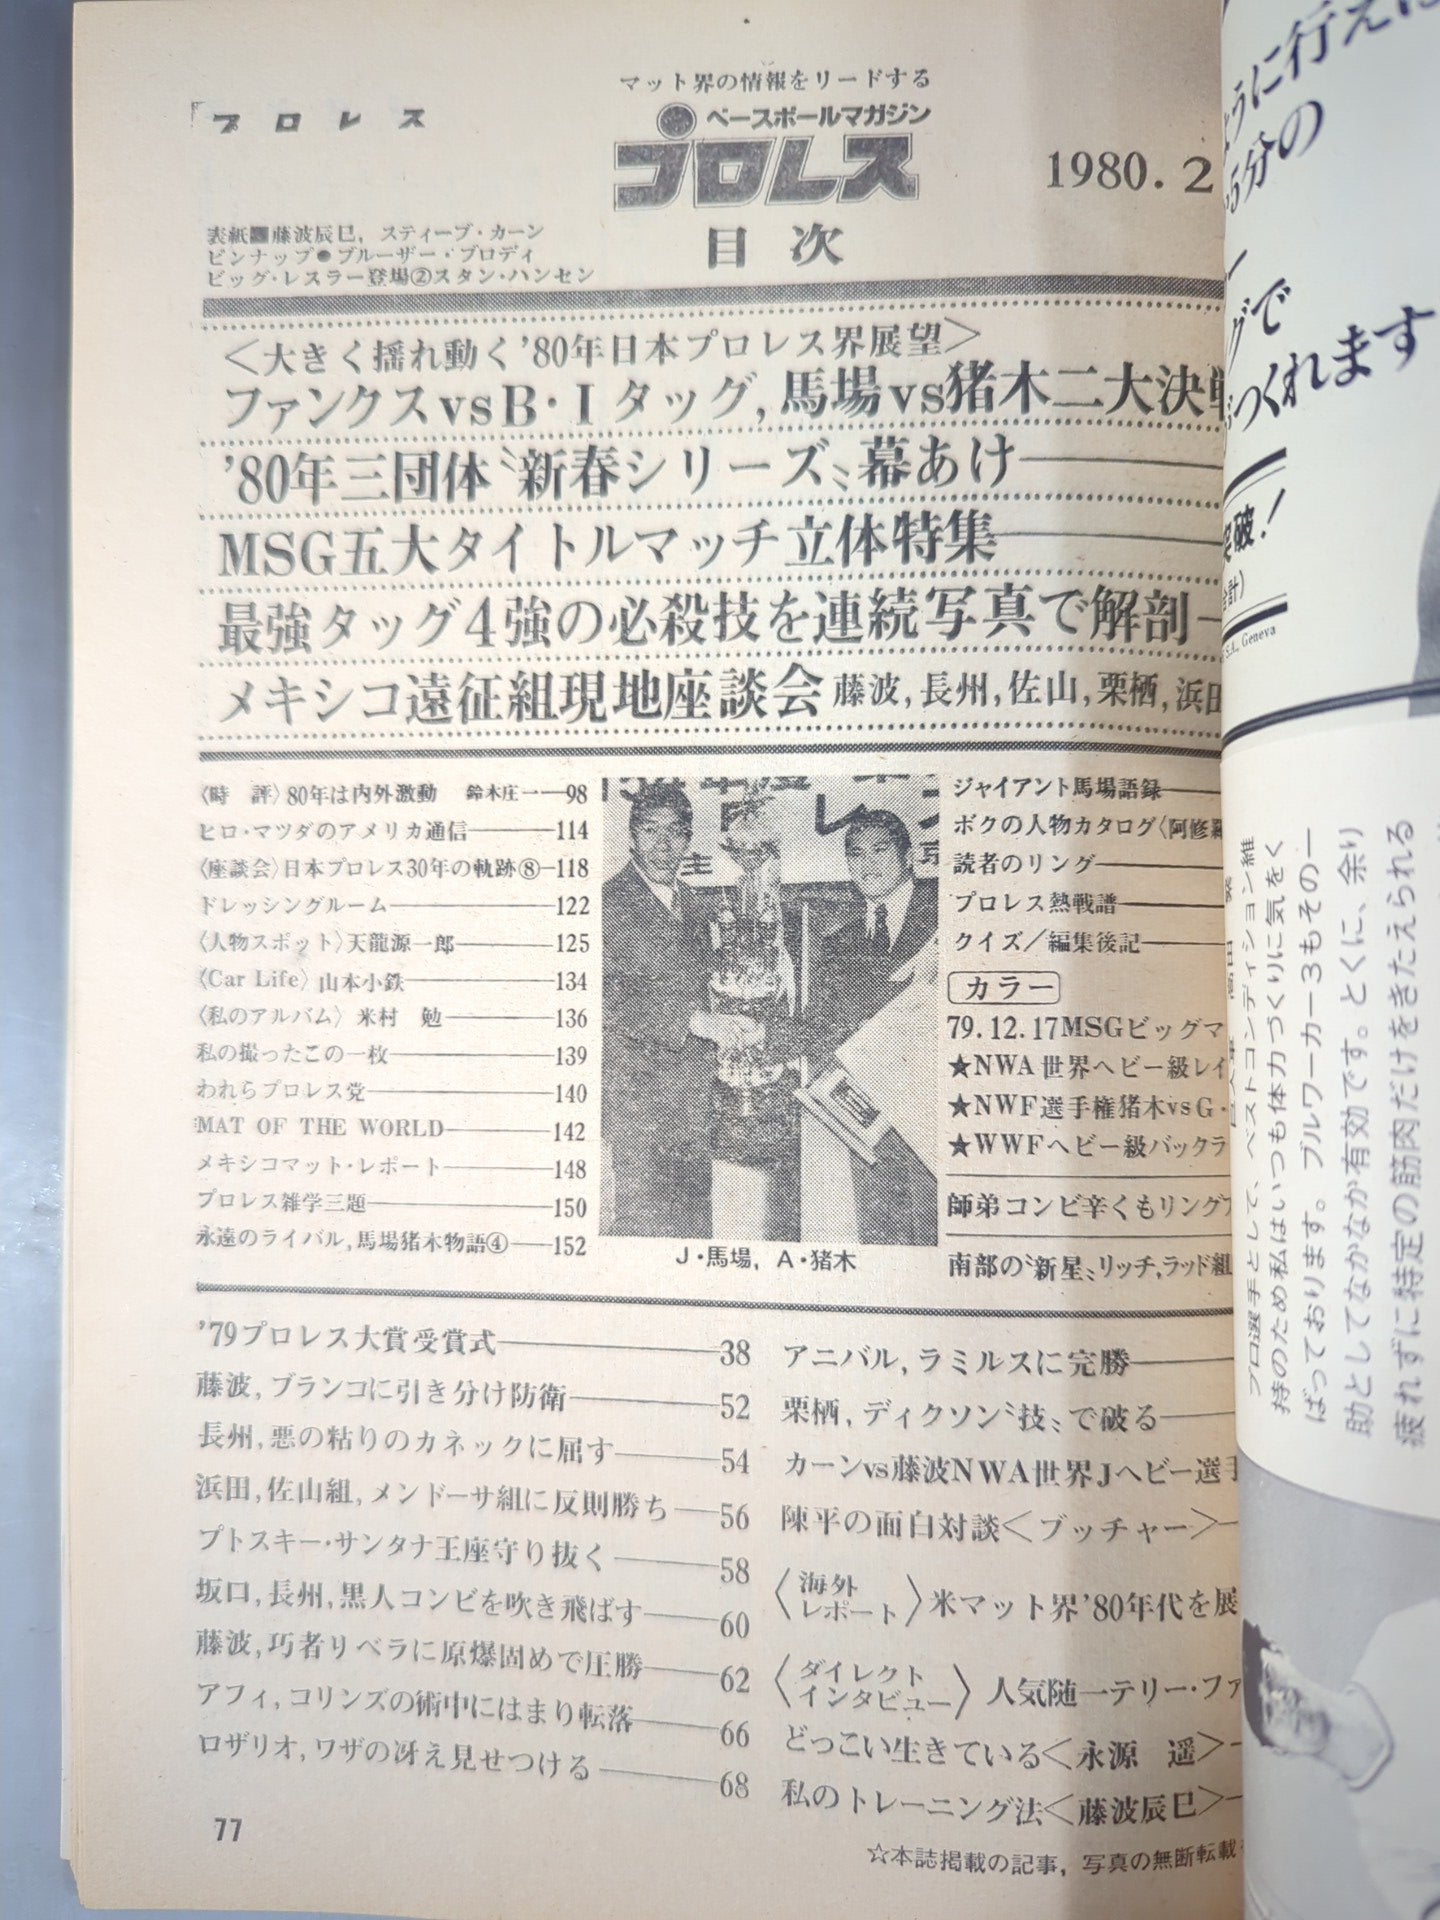 マット界の情報をリードする
「プロレス
ベースボールマガジン
プロレス
1980.2
目次
表紙■藤波辰巳，スティーブ・カーン
ピンナップ●ブルーザー・ブロディ
ビッグ・レスラー登場②スタン・ハンセン
＜大きく揺れ動く'80年日本プロレス界展望＞
ファンクスvsB・Iタッグ，馬場vs猪木二大決戦
'80年三団体〝新春シリーズ〟幕あけ
MSG五大タイトルマッチ立体特集
最強タッグ4強の必殺技を連続写真で解剖
メキシコ遠征組現地座談会 藤波，長州，佐山，栗栖，浜田
〈時　評〉80年は内外激動　鈴木庄一―98
ヒロ・マツダのアメリカ通信―114
〈座談会〉日本プロレス30年の軌跡⑧―118
ドレッシングルーム―122
〈人物スポット〉天龍源一郎―125
〈Car Life〉山本小鉄―134
〈私のアルバム〉米村　勉―136
私の撮ったこの一枚―139
われらプロレス党―140
MAT OF THE WORLD―142
メキシコマット・レポート―148
プロレス雑学三題―150
永遠のライバル，馬場猪木物語④―152
J・馬場，A・猪木
ジャイアント馬場語録
ボクの人物カタログ〈阿修羅
読者のリング
プロレス熱戦譜
クイズ／編集後記
カラー
79.12.17MSGビッグマ
★NWA世界ヘビー級レイ
★NWF選手権猪木vsG・
★WWFヘビー級バックラ
師弟コンビ辛くもリングア
南部の〝新星〟リッチ，ラッド組
'79プロレス大賞受賞式―38
藤波，ブランコに引き分け防衛―52
長州，悪の粘りのカネックに屈す―54
浜田，佐山組，メンドーサ組に反則勝ち―56
プトスキー・サンタナ王座守り抜く―58
坂口，長州，黒人コンビを吹き飛ばす―60
藤波，巧者リベラに原爆固めで圧勝―62
アフィ，コリンズの術中にはまり転落―66
ロザリオ，ワザの冴え見せつける―68
アニバル，ラミルスに完勝
栗栖，ディクソン〝技〟で破る
カーンvs藤波NWA世界Jヘビー選手
陳平の面白対談＜ブッチャー＞
〈海外レポート〉米マット界'80年代を展
〈ダイレクトインタビュー〉人気随一テリー・ファ
どっこい生きている＜永源　遥＞
私のトレーニング法＜藤波辰巳＞
77
☆本誌掲載の記事，写真の無断転載
ように行え
5分の
グで
つくれます
突破！
S.A., Geneva
プロ選手として、ベストコンディション維
持のため私はいつも体力づくりに気をく
ばっております。ブルワーカー3もその一
助としてなかなか有効です。とくに、余り
疲れずに特定の筋肉だけをきたえられる